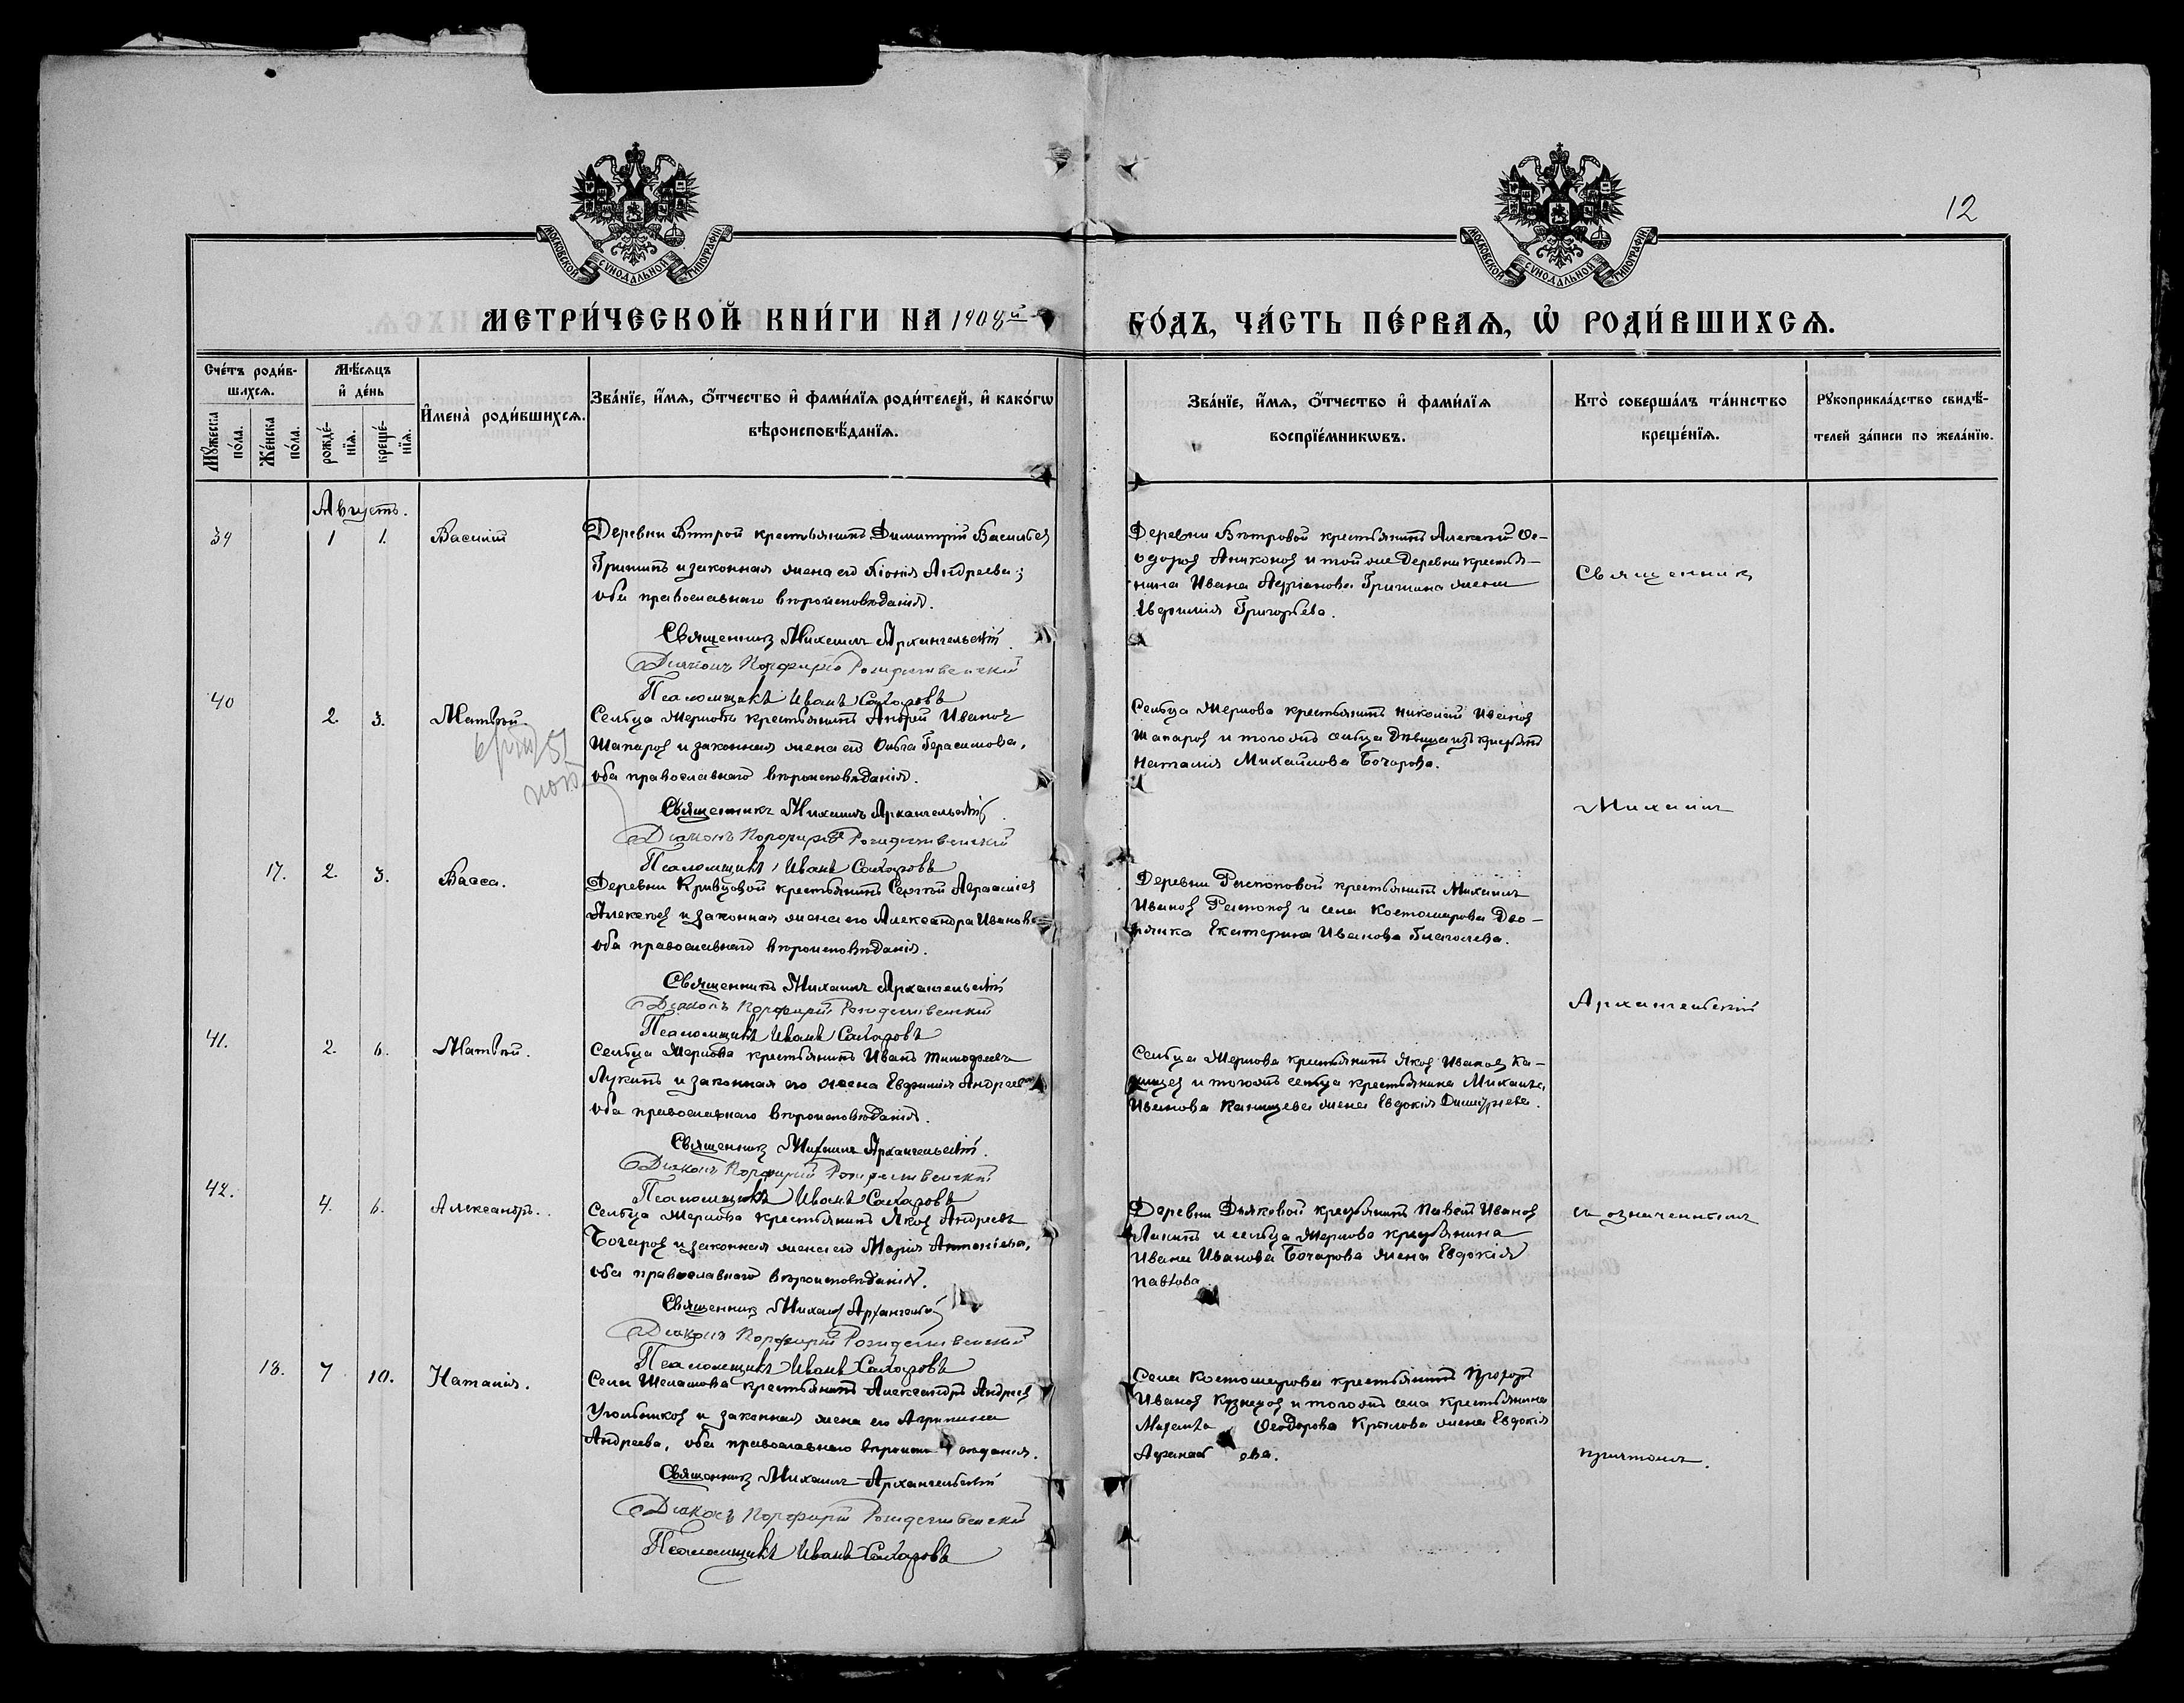 12
МОСКОВСКОЙ СѴНОДАЛЬНОЙ ТИПОГРАФІИ.
МОСКОВСКОЙ СѴНОДАЛЬНОЙ ТИПОГРАФІИ.
МЕТРИ́ЧЕСКОЙ КНИ́ГИ НА 1908й
ГО́ДЪ, ЧА́СТЬ ПЕ́РВАѦ, Ѡ҆ РОДИ́ВШИХСѦ.
Сче́тъ роди́в-
шихсѧ.
Мꙋ́жеска по́ла.
Же́нска по́ла.
Мѣ́сѧцъ
и҆ де́нь
рожде́-нїѧ.
креще́-нїѧ.
И҆мена̀ роди́вшихсѧ.
Зва́нїе, и҆́мѧ, ѻ҆́тчество и҆ фами́лїѧ роди́телей, и҆ како́гѡ
вѣроисповѣ́данїѧ.
Зва́нїе, и҆́мѧ, ѻ҆́тчество и҆ фами́лїѧ
воспрїе́мникѡвъ.
Кто̀ соверша́лъ та́инство
креще́нїѧ.
Рꙋкоприкла́дство свидѣ́-
телей за́писи по жела́нїю.
Августъ.
39 1 1. Василій
Деревни Вѣтровой крестьянинъ Димитрій Васильев
Гришинъ и законная жена его Андреева;
оба православнаго вѣроисповѣданія.
Священникъ Михаилъ Архангельскій.
Діаконъ Порфирій Рождественскій
Псаломщикъ Иванъ Сахаровъ
Деревни Вѣтровой крестьянинъ Алексѣй Ѳе-
одоров Аниконов и той же деревни крестья-
нина Ивана Адріанова Гришина жена
Евфимія Григорьева.
Священник
40 2. 3. Матвѣй.
Сельца Жернова крестьянинъ Андрей Иванов
Шапаров и законная жена его Ольга Герасимова,
оба православнаго вѣроисповѣданія.
Священникъ Михаилъ Архангельскій.
Діаконъ Порфирій Рождественскій
Псаломщикъ Иванъ Сахаровъ
Сельца Жернова крестьянинъ Николай Иванов
Шапаров и тогоже сельца дѣвица изъ крестьянъ
Наталия Михайлова Бочарова.
Михаилъ
17. 2. 3. Васса.
Деревни Кривцовой крестьянинъ Сергѣй
Алексѣев и законная жена его Александра Иванова
оба православнаго вѣроисповѣданія.
Священникъ Михаилъ Архангельскій
Діаконъ Порфирій Рождественскій
Псаломщикъ Иванъ Сахаровъ
Деревни Распоповой крестьянинъ Михаилъ
Иванов Распопов и села Костомарова Дво-
рянка Екатерина Иванова Благолева.
Архангельскій
41. 2. 6. Матвѣй.
Сельца Жернова крестьянинъ Иванъ Тимофеевъ
Лукинъ и законная его жена Евфимія Андреева
оба православнаго вѣроисповѣданія.
Священник Михаилъ Архангельскій.
Діаконъ Порфирій Рождественскій
Псаломщикъ Иванъ Сахаровъ
Сельца Жернова крестьянинъ Яков Иванов Ка-
нищев и тогожъ сельца крестьянина Михаила
Иванова Канищева жена Евдокія Димитріева.
42. 4. 6. Александръ.
Сельца Жернова крестьянинъ Яков Андреевъ
Бочаров и законная жена его Марія Антоніева,
оба православнаго вѣроисповѣданія.
Священник Михаил Архангельскій
Діаконъ Порфирій Рождественскій
Псаломщикъ Иванъ Сахаровъ
Деревни Дьяковой крестьянинъ Павелъ Иванов
и сельца Жернова крестьянина
Ивана Иванова Бочарова жена Евдокія
Павлова
съ означеннымъ
18. 7 10. Наталія.
Села Шелашова крестьянинъ Александръ Андреев
Угольников и законная жена его Агрипина
Андреева, оба православнаго вѣроисповѣданія.
Священник Михаилъ Архангельскій
Діаконъ Порфирій Рождественскій
Псаломщикъ Иванъ Сахаровъ
Села Костомарова крестьянинъ Прохоръ
Иванов Кузнецов и тогожъ села крестьянина
Ѳеодорова Крылова жена Евдокія
Афанасьева.
причтомъ.